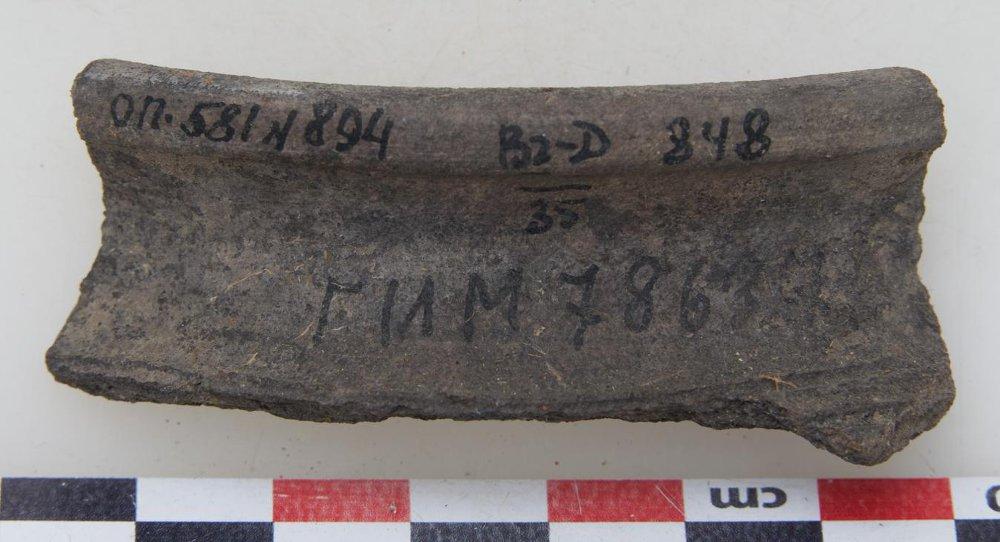 оп. 581 № 894 В2-D 848
35
ГИМ 786
cm